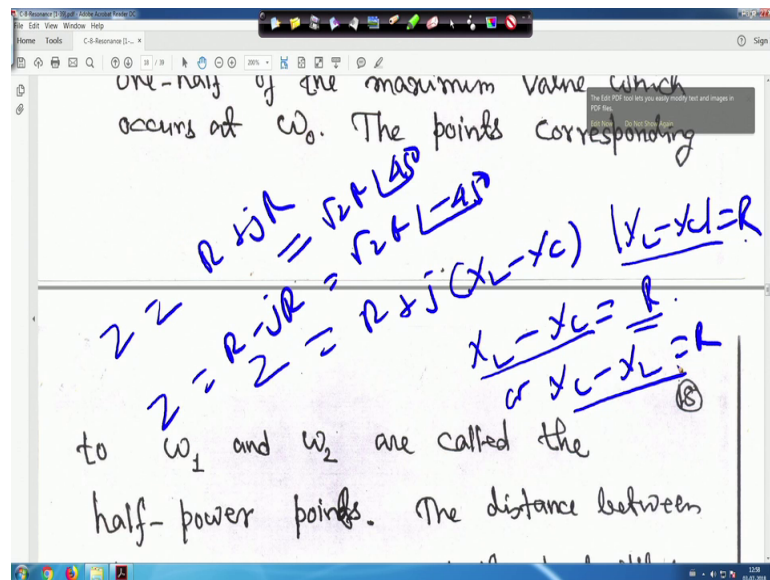 C-8-Resonance [1-39].pdf - Adobe Acrobat Reader DC
File Edit View Window Help
Home Tools C-8-Resonance [1-... × Sign
18 / 39 200%
The Edit PDF tool lets you easily modify text and images in
PDF files.
Edit Now Do Not Show Again
one-half of the maximum value which
occurs at ω₀. The points corresponding
Z = R + jR = √2R ∠45°
Z = R - jR = √2R ∠-45°
Z = R + j(X_L - X_C) |X_L - X_C| = R
X_L - X_C = R.
or X_C - X_L = R
18
to ω₁ and ω₂ are called the
half-power points. The distance between
12:58